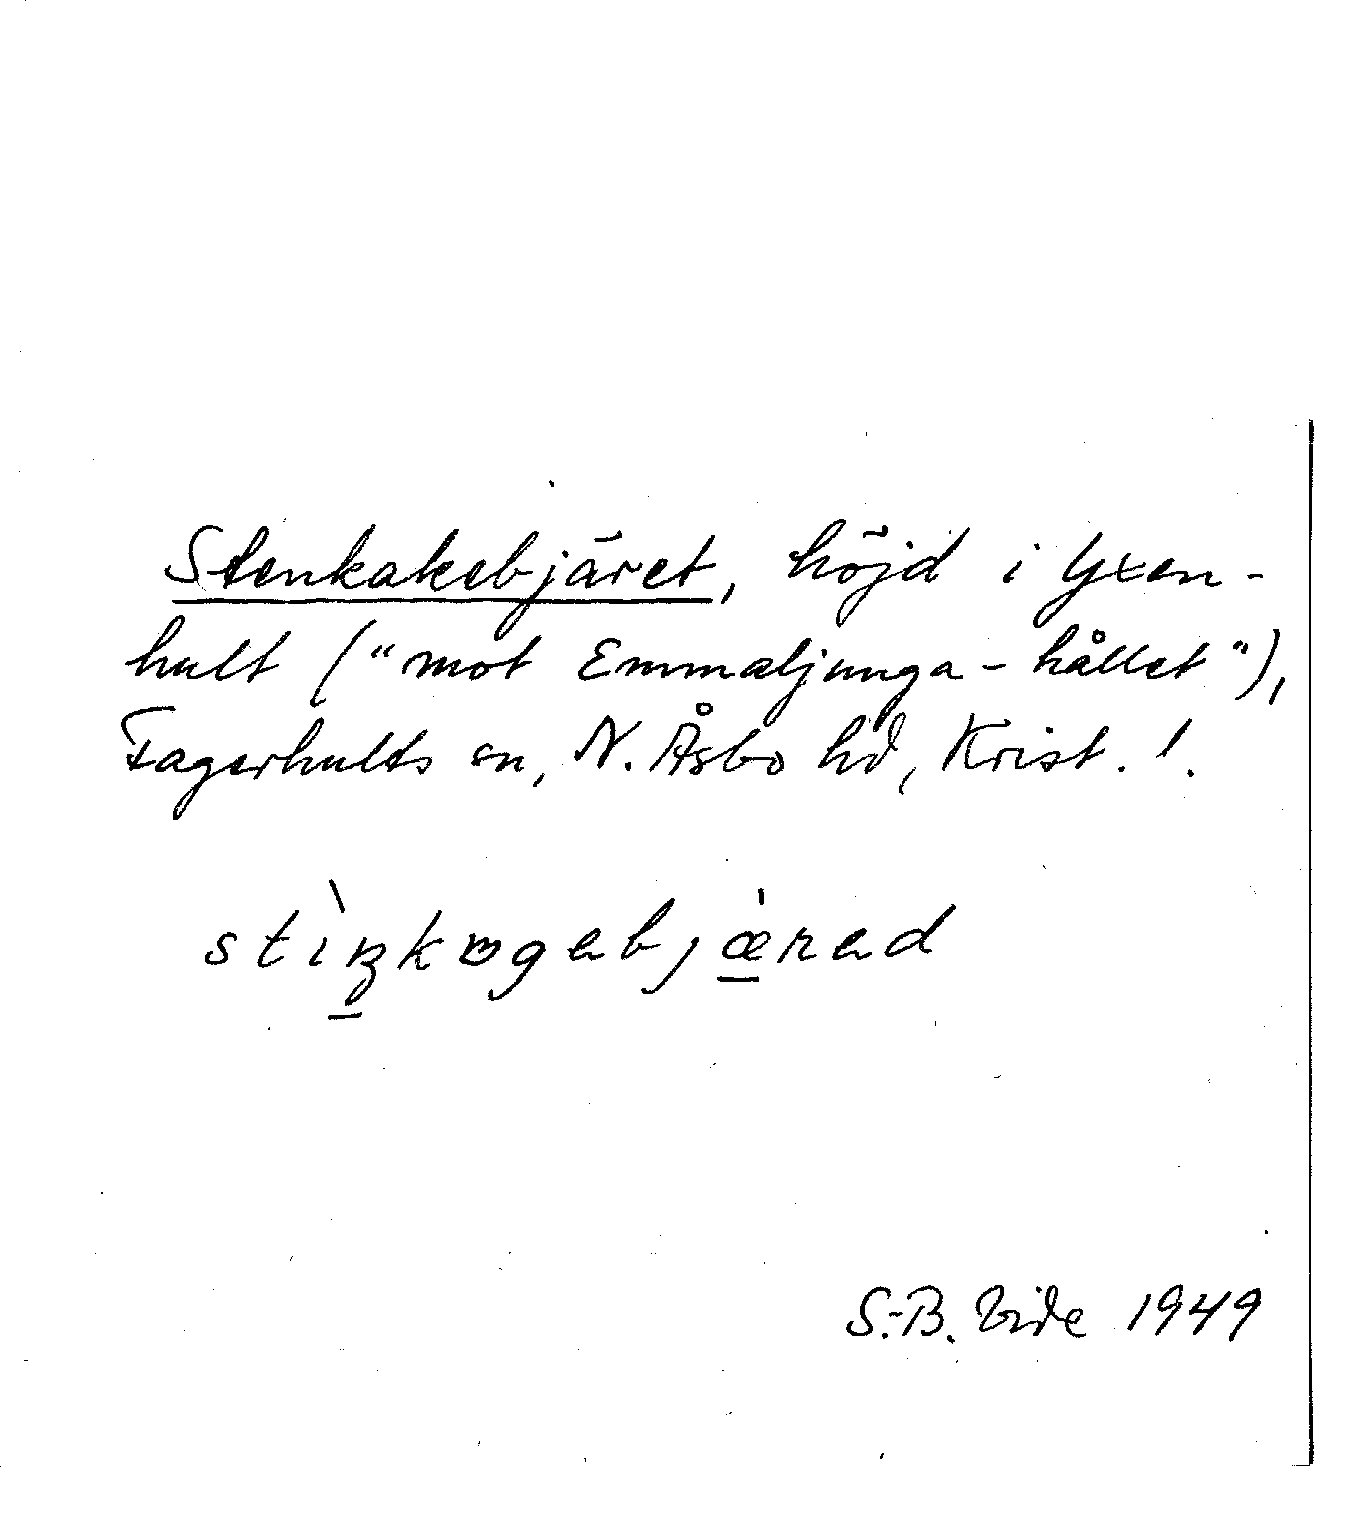 Stenkakebjäret, höjd i Yxen-
hult ("mot Emmaljunga-hållet"),
Fagerhults sn, N. Åsbo hd, Krist. l.
S.-B. Vide 1949